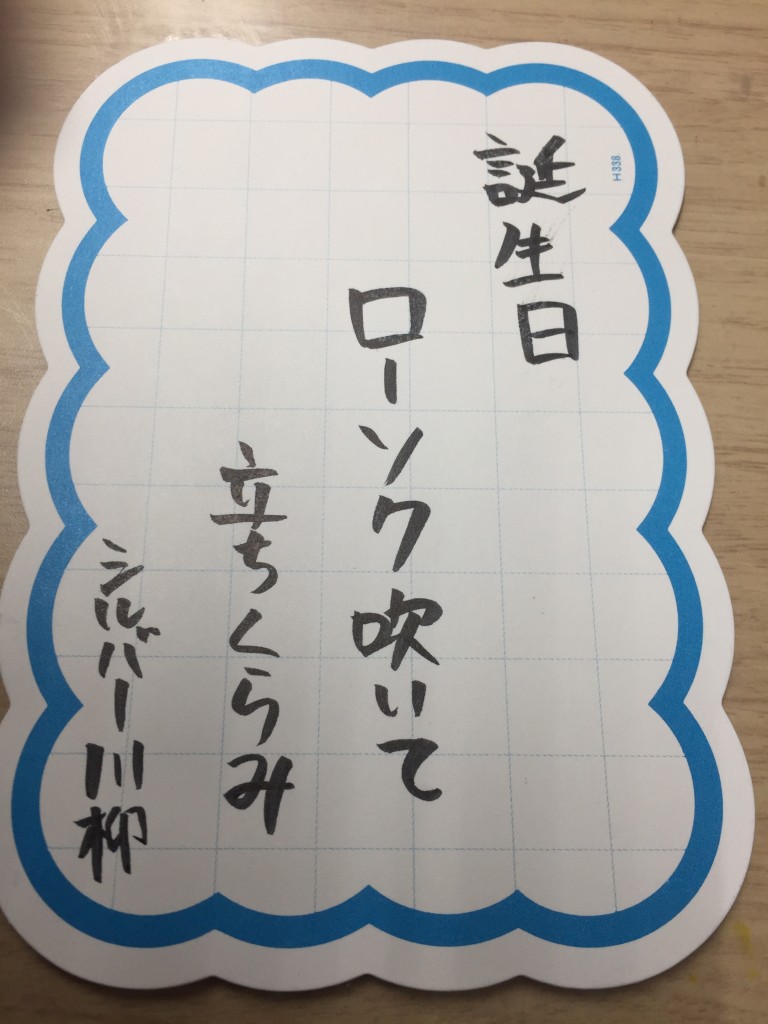 誕生日
ローソク吹いて
立ちくらみ
シルバー川柳
H338